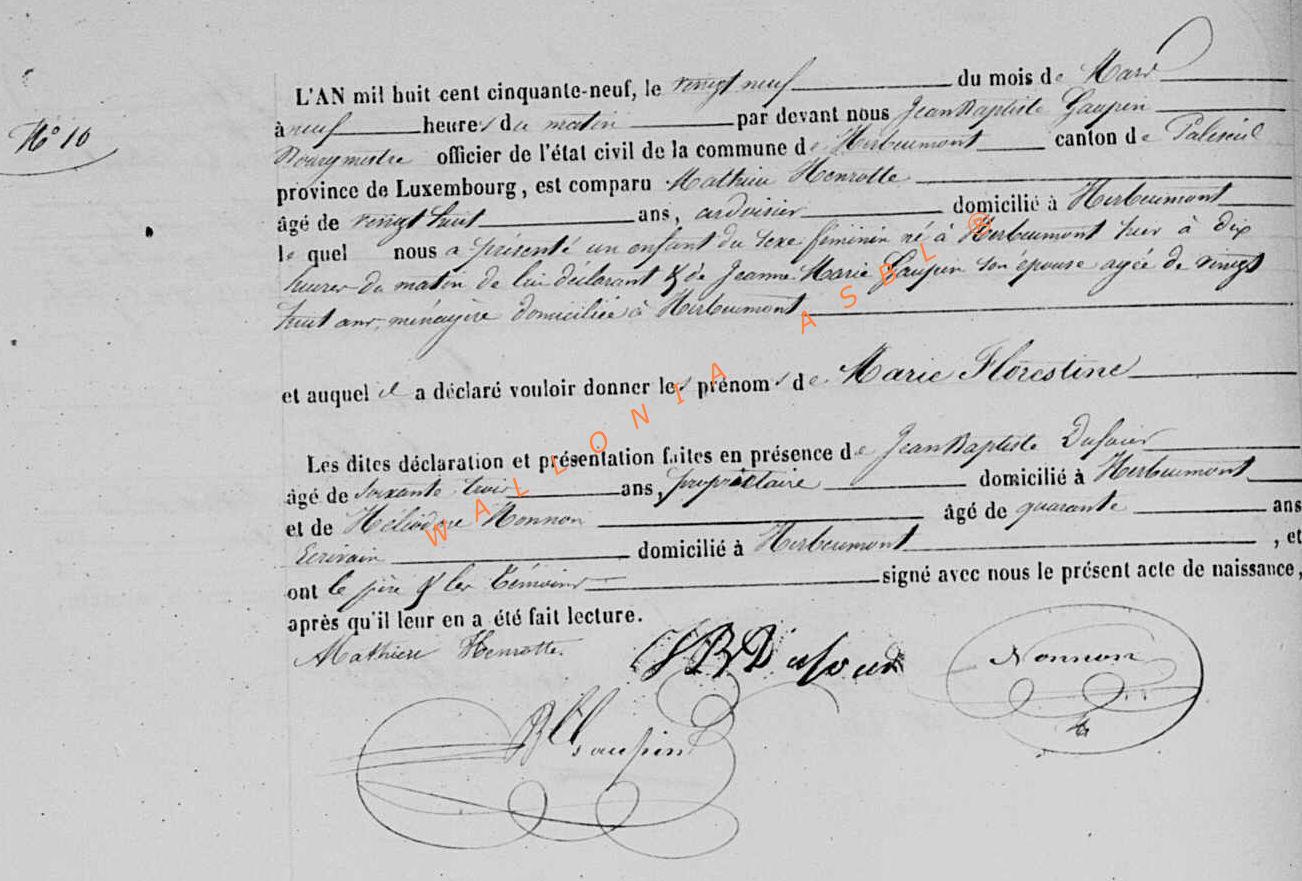 L'AN mil huit cent cinquante-neuf, le vingt neuf du mois de Mars
N° 10
à neuf heures du matin par devant nous Jean Baptiste Gaupin
Bourgmestre officier de l'état civil de la commune de Herbeumont canton de Paliseul
province de Luxembourg, est comparu Mathieu Henrotte
âgé de vingt huit ans, ardoisier domicilié à Herbeumont
le quel nous a présenté un enfant du sexe féminin né à Herbeumont hier à dix
heures du matin de lui déclarant & de Jeanne Marie Gaupin son épouse agée de vingt
huit ans, ménagère domiciliée à Herbeumont
et auquel il a déclaré vouloir donner les prénoms de Marie Florestine
Les dites déclaration et présentation faites en présence de Jean Baptiste Dufour
âgé de soixante trois ans, propriétaire domicilié à Herbeumont
et de Héliodore Nonnon âgé de quarante ans
Ecrivain domicilié à Herbeumont, et
ont le père & les témoins signé avec nous le présent acte de naissance,
après qu'il leur en a été fait lecture.
Mathieu Henrotte. JB Dufour Nonnon
JB Gaupin
WALLONIA ASBL ®